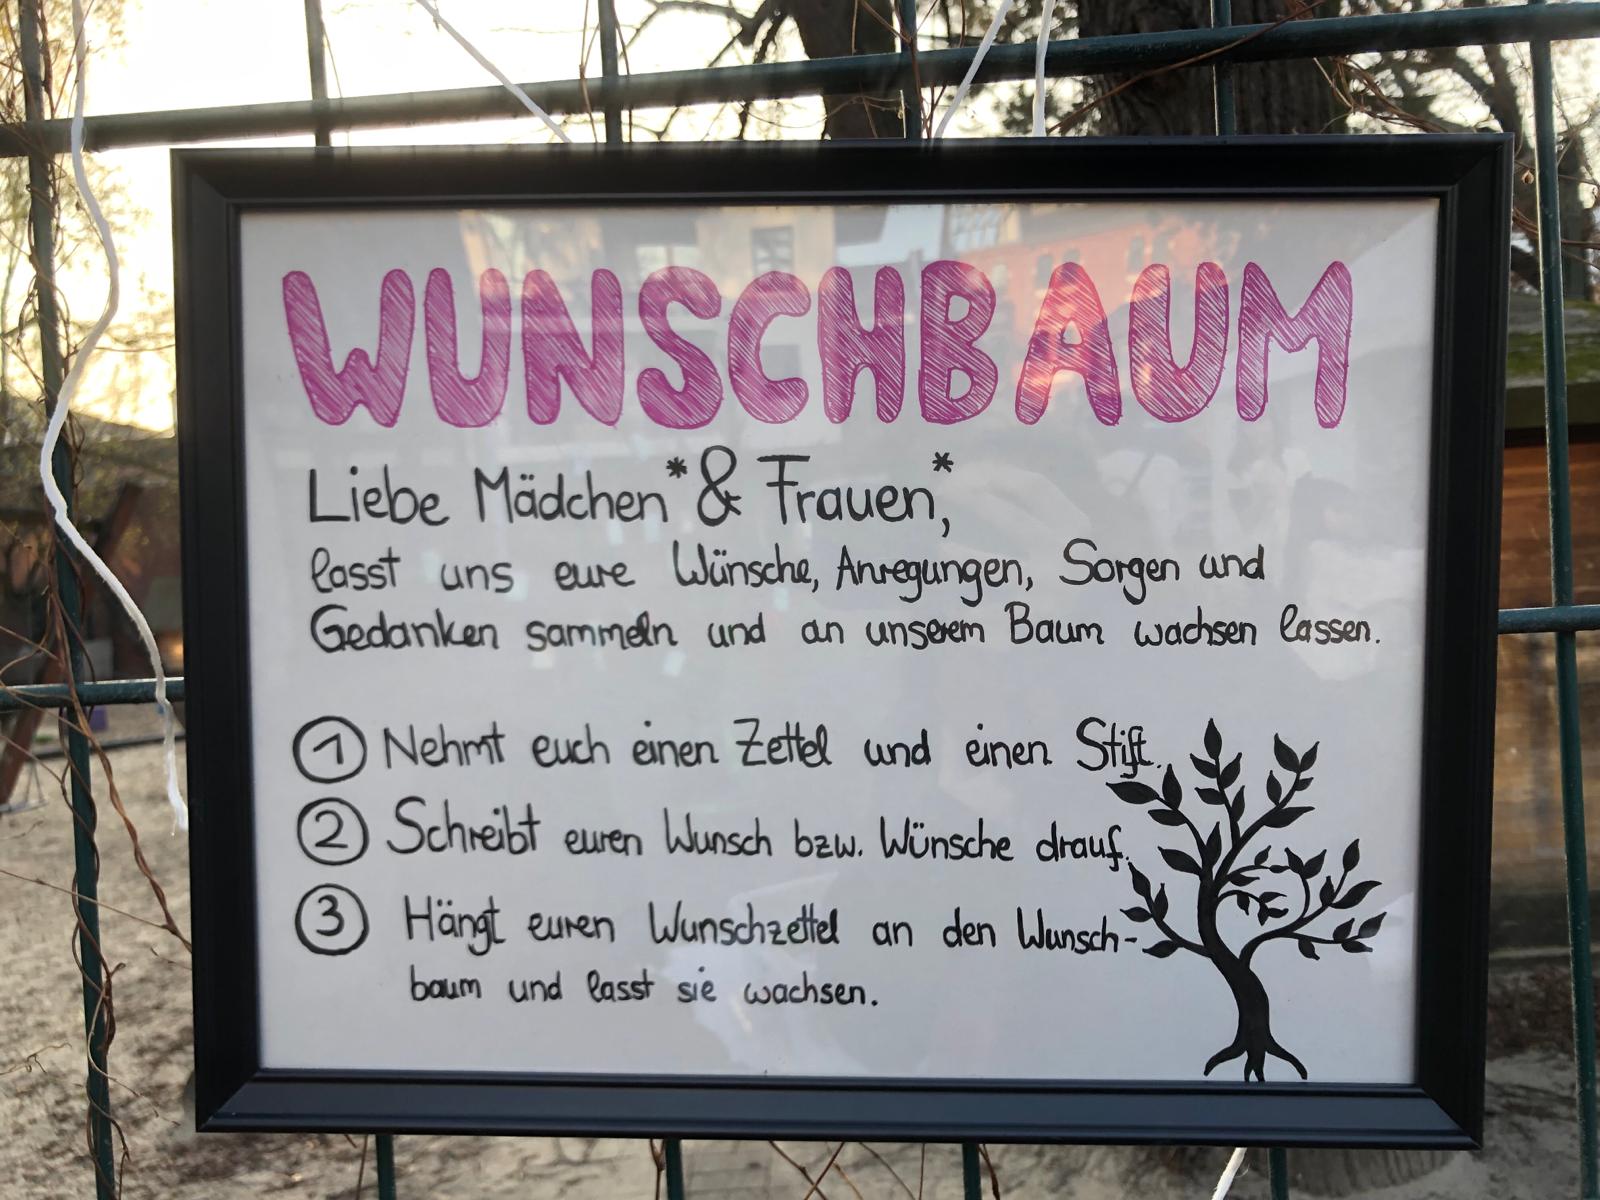 WUNSCHBAUM
Liebe Mädchen* & Frauen*,
lasst uns eure Wünsche, Anregungen, Sorgen und
Gedanken sammeln und an unserem Baum wachsen lassen.
1 Nehmt euch einen Zettel und einen Stift.
2 Schreibt euren Wunsch bzw. Wünsche drauf.
3 Hängt euren Wunschzettel an den Wunsch-
baum und lasst sie wachsen.